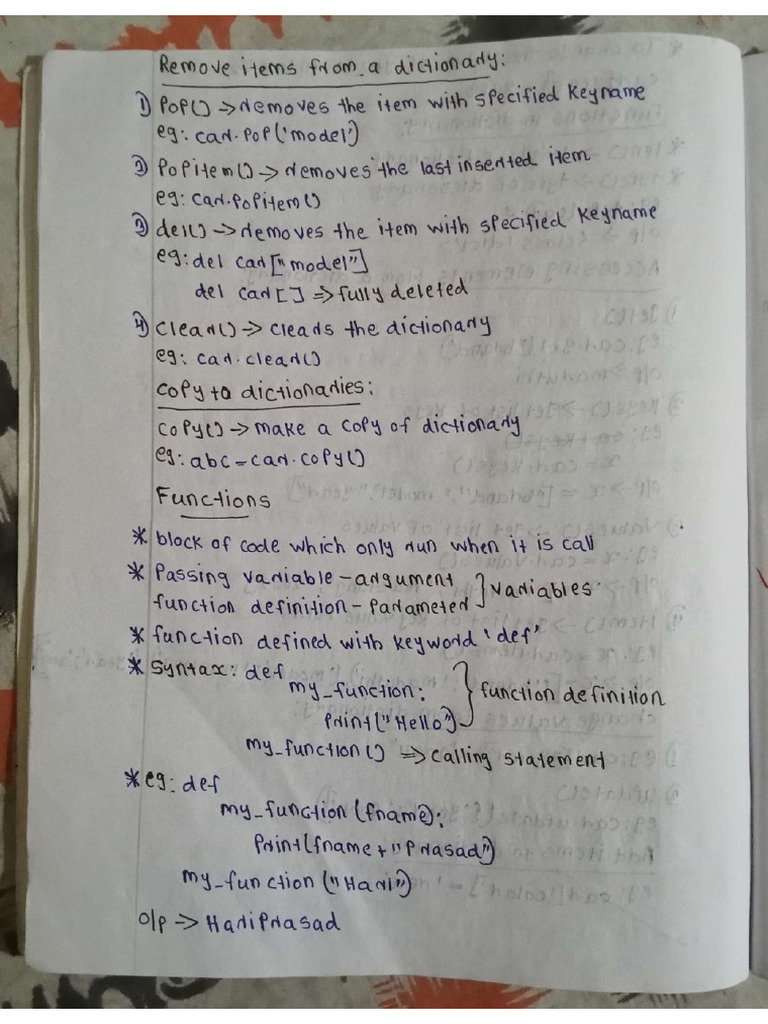 Remove items from a dictionary:
1) Pop() -> removes the item with specified keyname
eg: car.pop('model')
2) Popitem() -> removes the last inserted item
eg: car.popitem()
3) del() -> removes the item with specified keyname
eg: del car["model"]
del car[] => fully deleted
4) clear() -> clears the dictionary
eg: car.clear()
Copy to dictionaries:
copy() -> make a copy of dictionary
eg: abc = car.copy()
Functions
* block of code which only run when it is call
* Passing variable - argument
function definition - Parameter } variables
* function defined with keyword 'def'
* Syntax: def
my_function:
Print("Hello") } function definition
my_function() => calling statement
* eg: def
my_function(fname):
Print(fname + "Prasad")
my_function("Hari")
o/p -> HariPrasad